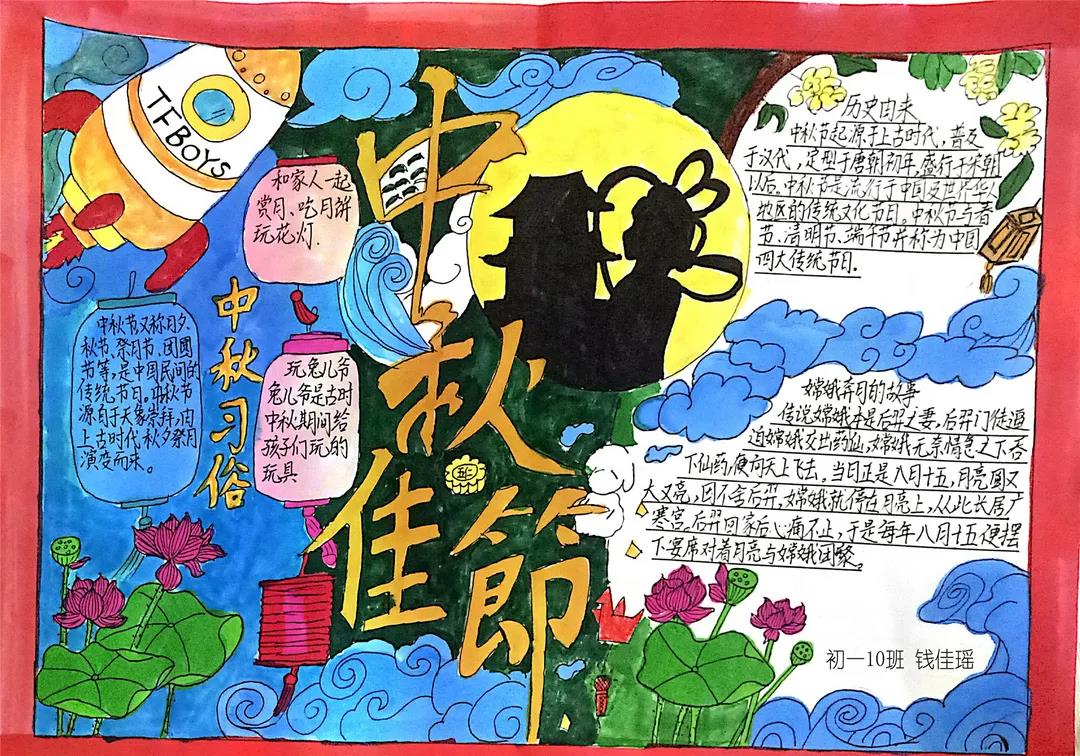 TFBOYS
和家人一起
赏月、吃月饼
玩花灯.
中秋佳節
中秋习俗
中秋节又称月夕、
秋节、祭月节、团圆
节等,是中国民间的
传统节日。中秋节
源自于天象崇拜,由
上古时代秋夕祭月
演变而来。
玩兔儿爷
兔儿爷是古时
中秋期间给
孩子们玩的
玩具
历史由来
中秋节起源于上古时代,普及
于汉代,定型于唐朝初年,盛行于宋朝
以后.中秋节是流行于中国及世界华人
地区的传统文化节日。中秋节与春
节、清明节、端午节并称为中国
四大传统节日。
嫦娥奔月的故事
传说嫦娥本是后羿之妻,后羿门徒逼
迫嫦娥交出药仙,嫦娥无奈情急之下吞
下仙药,便向天上飞去。当日正是八月十五,月亮圆又
大又亮,因不舍后羿,嫦娥就停在月亮上,从此长居广
寒宫.后羿回家后心痛不止,于是每年八月十五便摆
下宴席对着月亮与嫦娥团聚。
初一10班 钱佳瑶